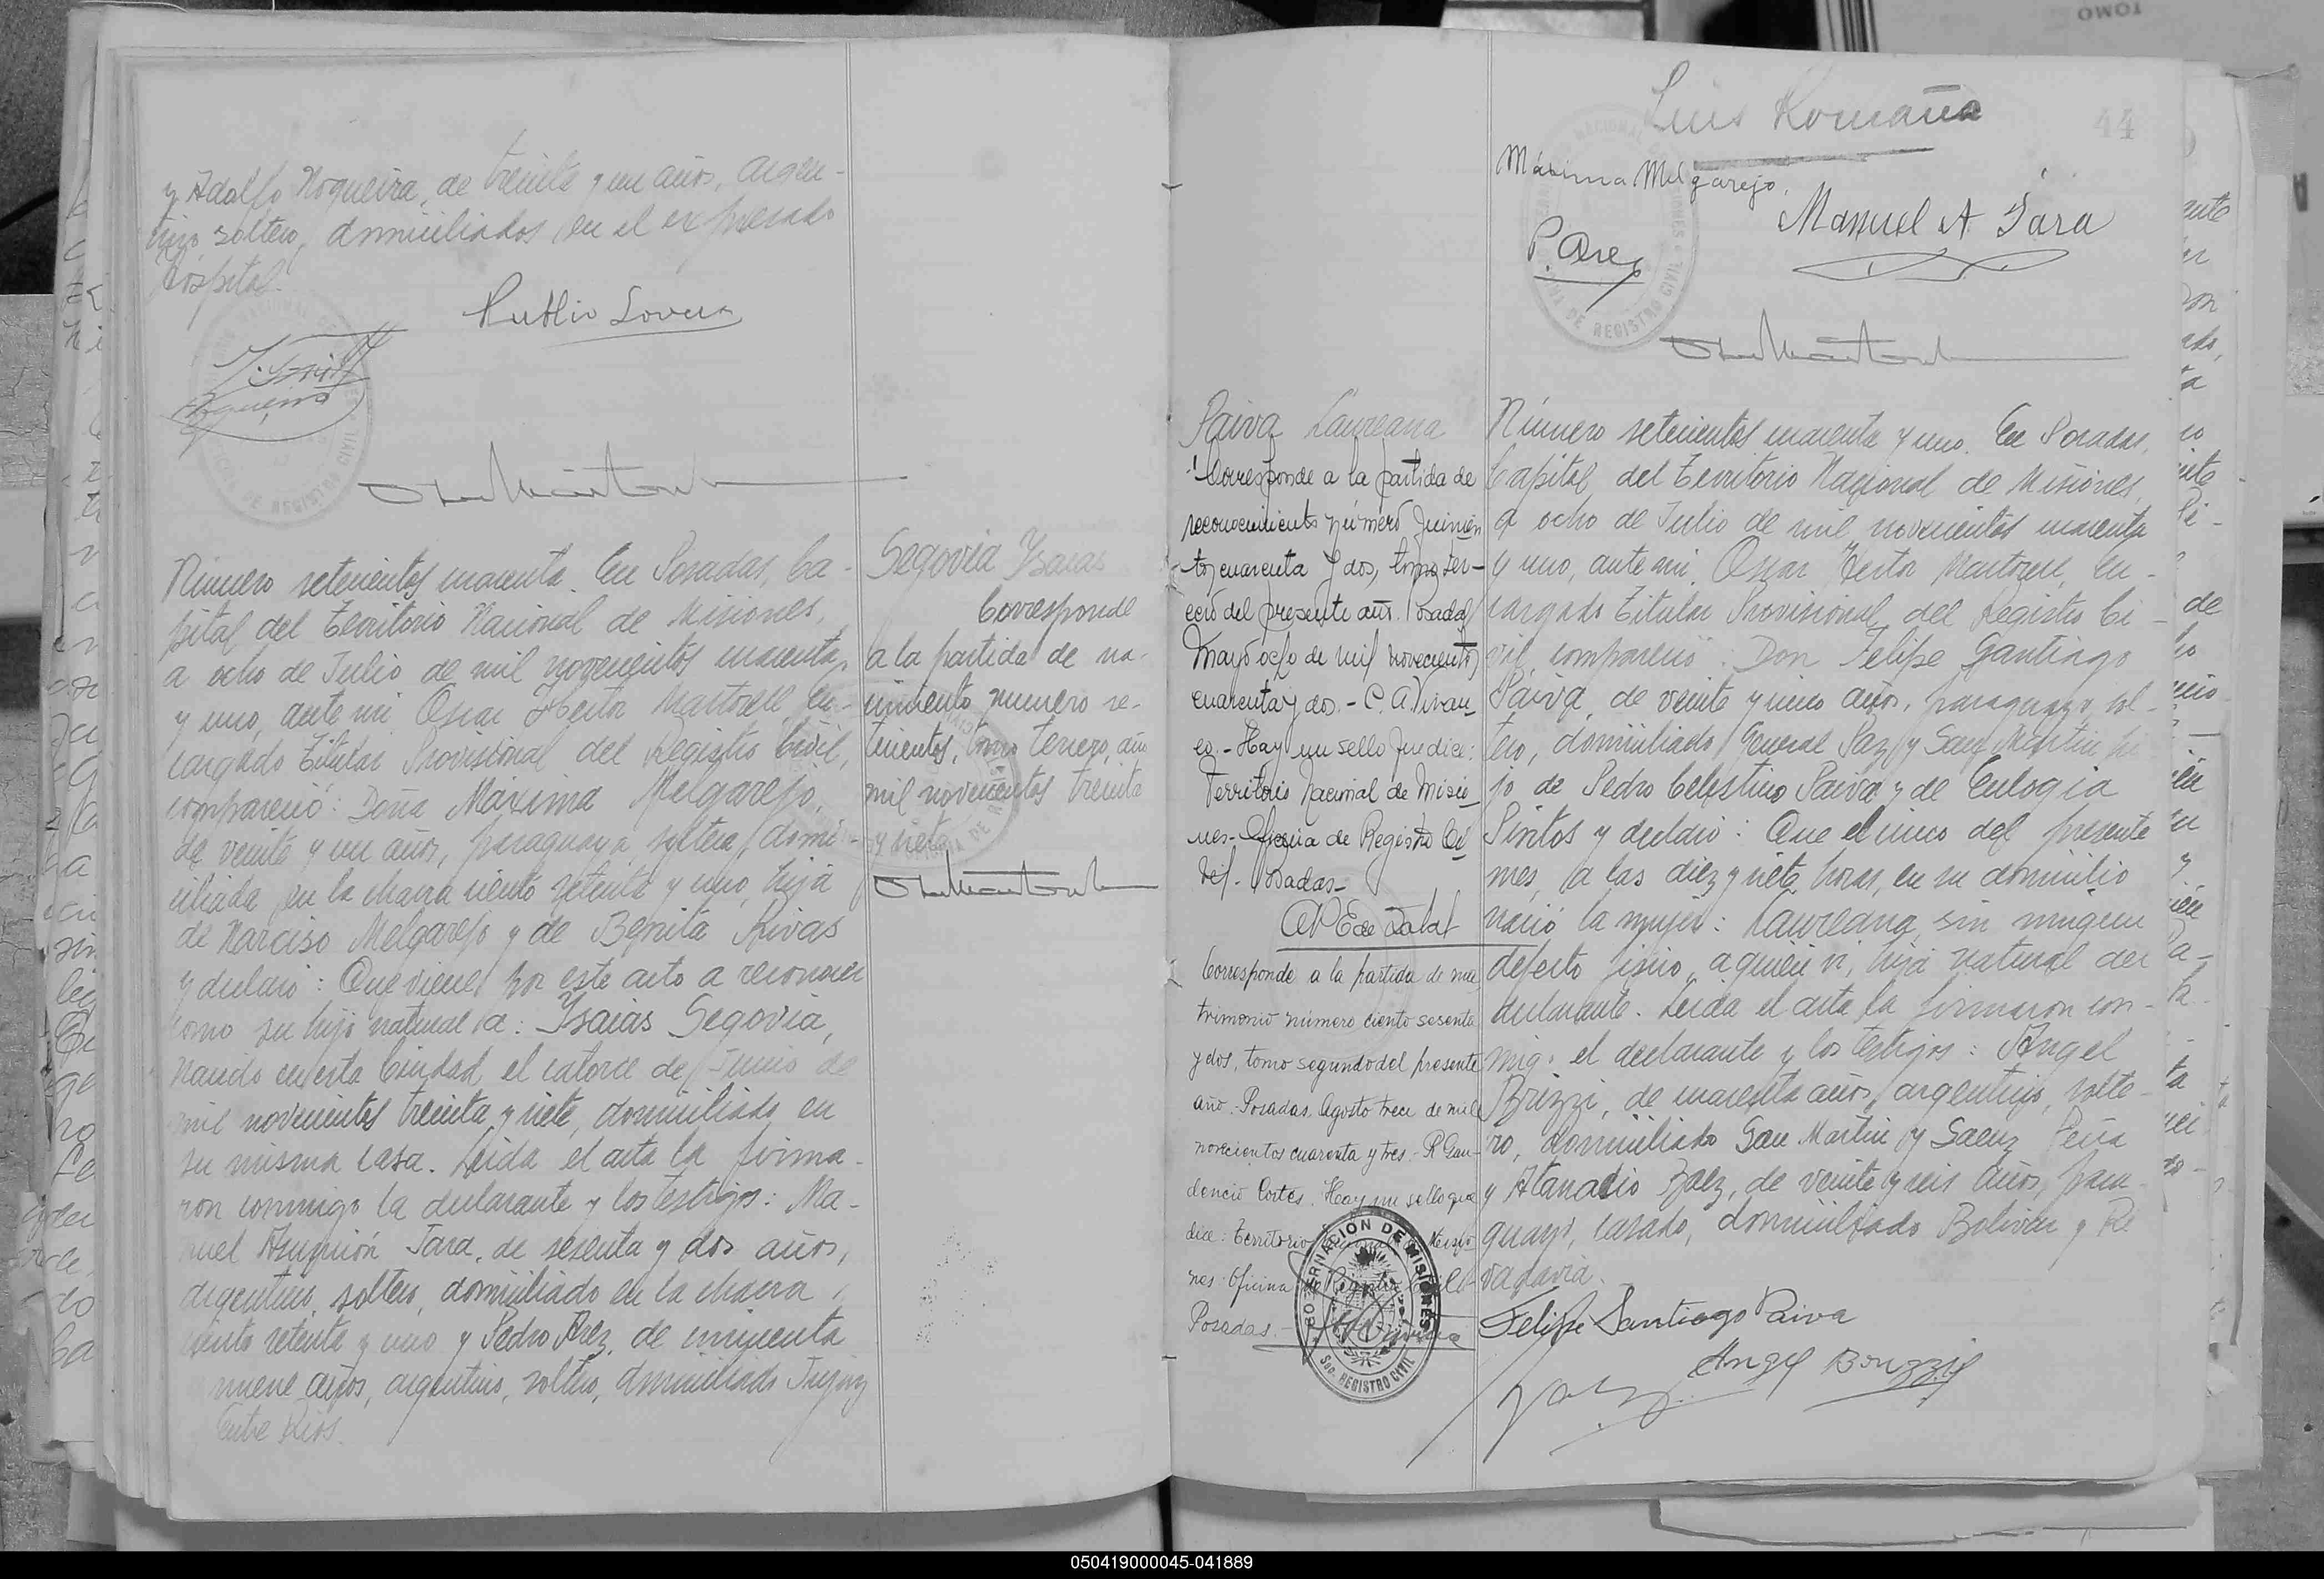 y Adolfo Noqueira, de treinta y un años, argen-
tino soltero, domiciliados en el expresado
hospital.
Publio Lovera
Número setecientos cuarenta. En Posadas, Ca-
pital del Territorio Nacional de Misiones,
a ocho de Julio de mil novecientos cuarenta
y uno, ante mi Oscar Hector Martorell, En-
cargado Titular Provisional del Registro Civil,
compareció: Doña Maxima Melgarejo,
de veinte y un años, paraguaya, soltera, domi-
ciliada en la chacra ciento setenta y uno, hija
de Narciso Melgarejo y de Benita Rivas
y declaró: Que viene por este acto a reconocer
como su hijo natural a: Ysaias Segovia,
nacido en esta Ciudad el catorce de Junio de
mil novecientos treinta y siete, domiciliado en
su misma casa. Leida el acta la firma-
ron conmigo la declarante y los testigos: Ma-
nuel Asunción Jara, de sesenta y dos años,
argentino, soltero, domiciliado en la chacra
ciento setenta y uno y Pedro Arez, de cincuenta
nueve años, argentino, soltero, domiciliado Jujuy
Entre Rios.
Segovia Ysaias
Corresponde
a la partida de na-
cimiento numero se-
tecientos, tomo tercero, año
mil novecientos treinta
y siete
44
Luis Romaña
Máxima Melgarejo.
Manuel A Jara
P. Arez
OFICINA DE REGISTRO CIVIL
Paiva Laureana
Corresponde a la partida de
reconocimiento número quinien
tos cuarenta y dos, tomo ter-
cero del presente año. Posadas
Mayo ocho de mil novecientos
cuarenta y dos.- C. A. Vivan
co.- Hay un sello que dice:
Territorio Nacional de Misio
nes- Oficina de Registro Ci
vil- Posadas-
Corresponde a la partida de ma
trimonio número ciento sesenta
y dos, tomo segundo del presente
año. Posadas, Agosto trece de mil
novecientos cuarenta y tres.- R Gau-
dencio Cortés. Hay un sello que
dice: Territorio Nacional de Misio
nes: Oficina de Registro Civil
Posadas.-
GOBERNACION DE MISIONES
Sec. REGISTRO CIVIL
Número setecientos cuarenta y uno. En Posadas,
Capital del Territorio Nacional de Misiones,
a ocho de Julio de mil novecientos cuarenta
y uno, ante mi, Oscar Hector Martorell, En-
cargado Titular Provisional del Registro Ci-
vil, compareció: Don Felipe Santiago
Paiva, de veinte y cinco años, paraguayo, sol-
tero, domiciliado General Paz y San Martin hi
jo de Pedro Celestino Paiva y de Eulogia
Pintos y declaró: Que el cinco del presente
mes, a las diez y siete horas, en su domicilio
nació la mujer: Laureana, sin ningun
defecto fisico, a quien vi, hija natural del
declarante. Leida el acta la firmaron con-
migo el declarante y los testigos: Angel
Brizzi, de cuarenta años, argentino, solte-
ro, domiciliado San Martin y Saenz Peña
y Atanacio Baez, de veinte y seis años, para-
guayo, casado, domiciliado Bolivar y Ri
vadavia.
Felipe Santiago Paiva
Angel Bruzzi
050419000045-041889